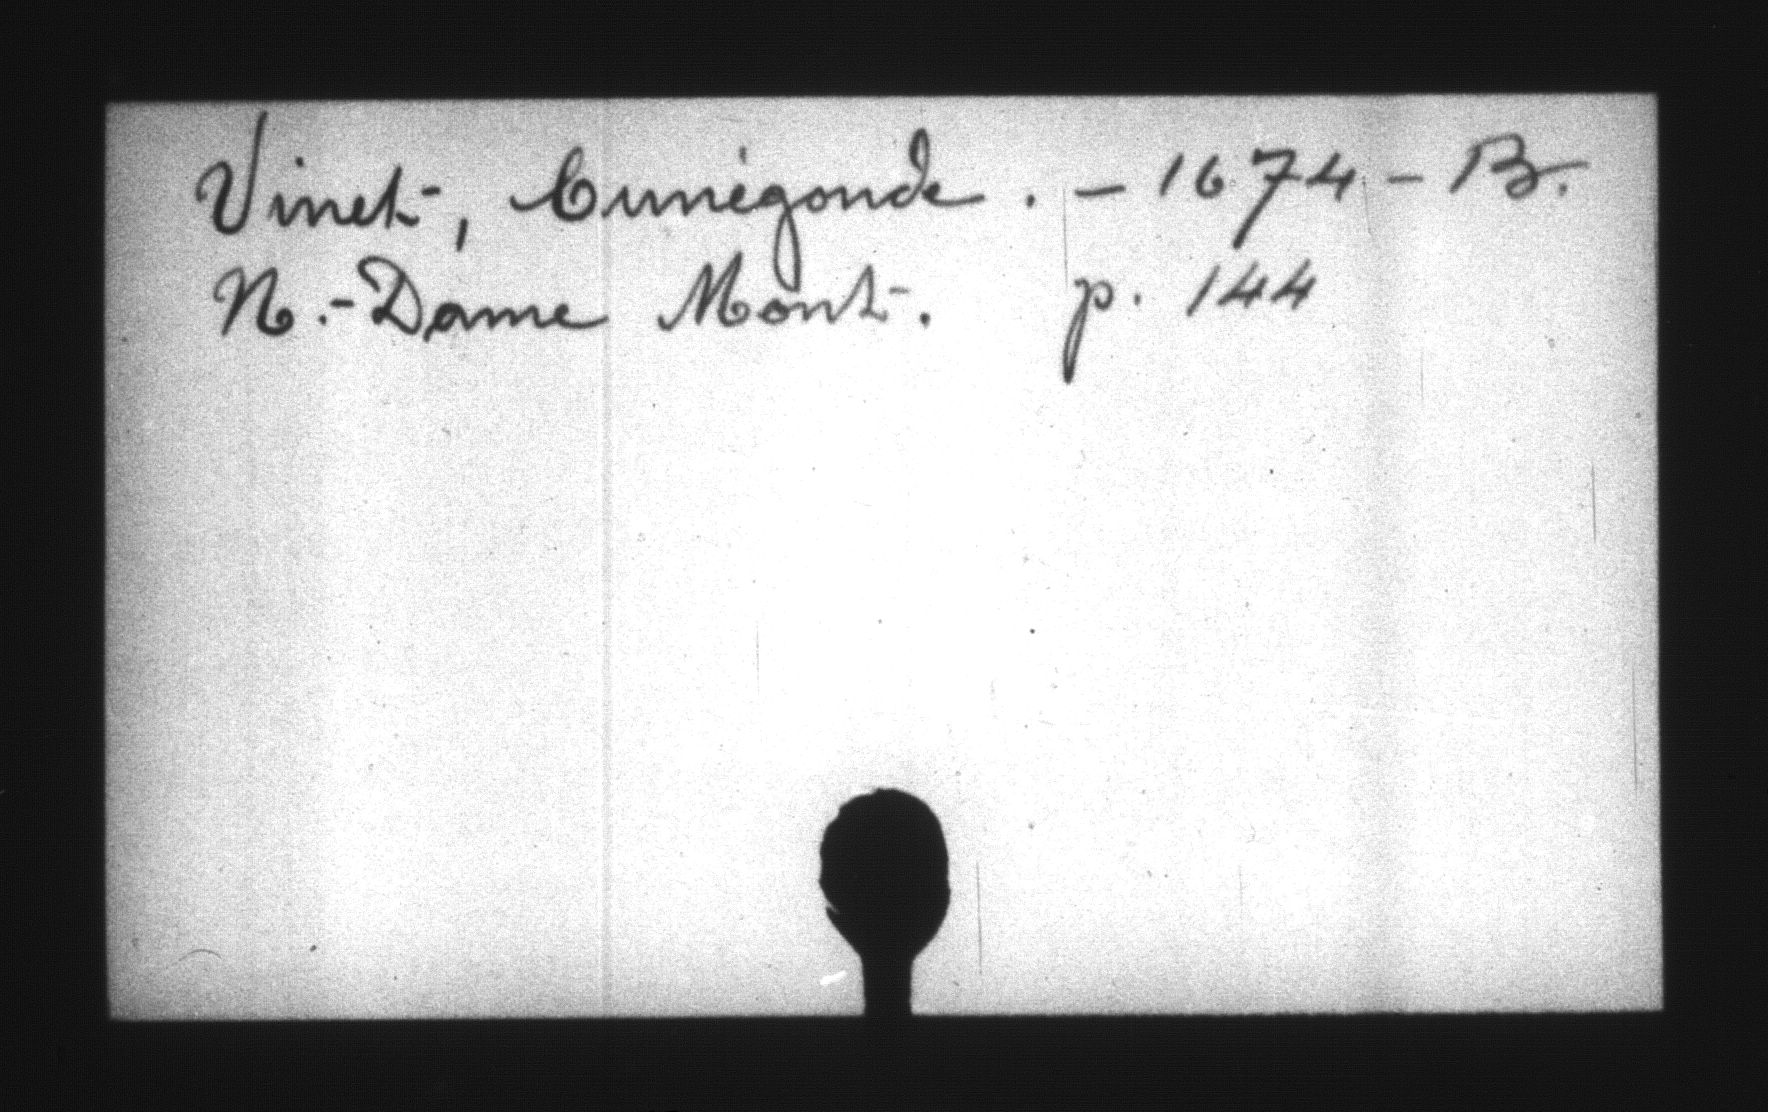 Vinet, Cunégonde. - 1674 - B.
N.-Dame Mont. p. 144